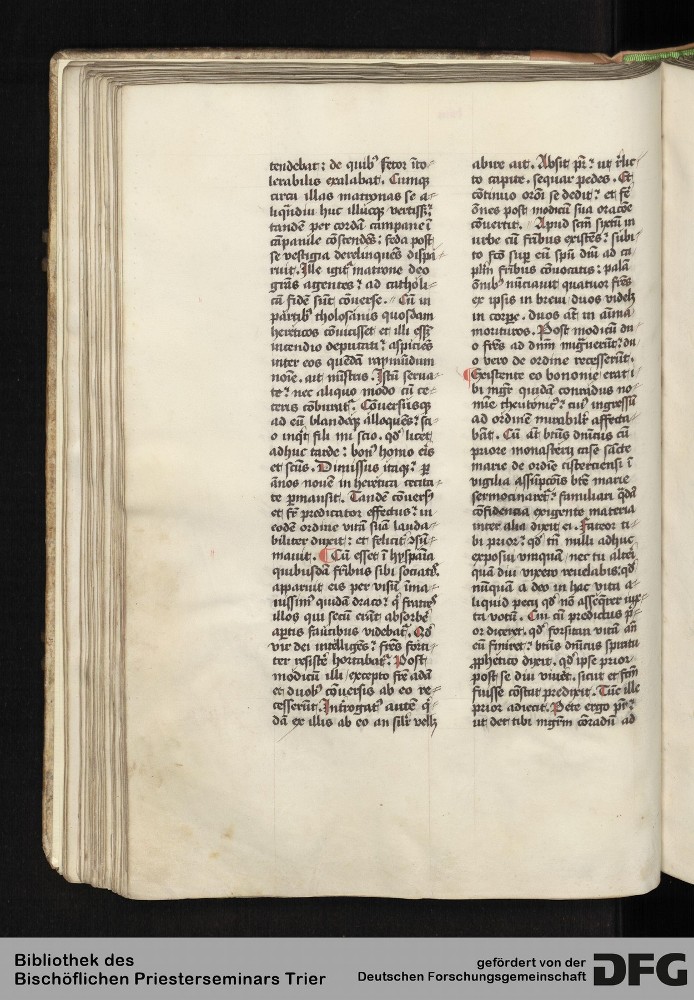 tendebat: de quibꝰ fetor īto⸗
lerabilis exalabat. Cumqꝫ
circa illas matronas se a⸗
liqͣndiu huc illucqꝫ vertissꝫ:
tandē per cordā campane ī
cāpanile cōscendēs: feda post
se vestigia derelinquēs dispa⸗
ruit. Ille igitͬ matrone deo
grās agentes: ad catholi⸗
cā fidē sūt cōuerse. Cū in
partibꝰ tholosanis quosdam
hereticos cōuicisset et illi essꝫ
incendio deputati: aspiciēs
inter eos quēdā raymūdum
noīe. ait mīstris. Istū serua⸗
te: nec aliquo modo cū ce⸗
teris cōburatͬ. Cōuersusqꝫ
ad eū blandeqꝫ alloquēs: sci⸗
o inqͥt fili mi scio. qd̛ licet
adhuc tarde: bonꝰ homo eis
et scūs. Dimissus itaqꝫ: ꝑ
ānos nouē in heretica cecita⸗
te ꝑmansit. Tandē cōuersꝰ
et fr̄ predicator effectus: in
eodē ordine vitā suā lauda⸗
biliter duxit: et felicitͬ ꝯsū⸗
mauit. Cū esset ī hyspaīa
quibusdā frībus sibi sociatꝭ.
apparuit eis per visū īma⸗
nissimꝰ quidā draco: qͥ fratres
illos qui secū erāt absorbē
aꝑtis faucibus videbatͬ. Qd̛
vir dei intelligēs: fr̄es forti⸗
ter resistē hortabatͬ. Post
modicū illi excepto fr̄e adā
et duobꝰ cōuersis ab eo re⸗
cesserūt. Introgatꝰ autē qͥ
dā ex illis ab eo an silͬr vellꝫ
abire ait. Absit pr̄: ut r̄lic⸗
to capite. sequar pedes. Et
cōtinuo orōi se dedit: et fr̄
ōnes post modicū sua oracōe
cōuertit. Apud scm̄ syxtū in
vrbe cū fribus existēs: subi⸗
to fcō suꝑ eū spū dīu ad ca
plm̄ fribus cōuocatis: palā
omībꝰ nūciauit quatuor fr̄es
ex ipsis in breui duos videlꝫ
in corꝑe. duos aūt in aīma
morituros. Post modicū du
o fr̄es ad dnm̄ migͣuerūt: du
o vero de ordine recesserūt.
Existente eo bononie erat i⸗
bi mgr̄ quidā conradus no⸗
mīe theutonicꝰ: cuiꝰ ingressū
ad ordinē mirabilr̄ affecta⸗
bāt. Cū aūt btūs dnicus cū
priore monasterij case sācte
marie de ordīe cisterciensi ī
vigilia assūpcōis btē marie
sermocinaretͬ: familiari qͣdā
cōfidencia exigente materia
inter alia dixit ei. Fateor ti⸗
bi prior: qd̛ tn̄ nulli adhuc
exposui vnquā: nec tu alteri
quā diu vixero reuelabis. qd̛
nūquā a deo in hac vita a⸗
liquid pecij qd̛ nō assequerer iux⸗
ta votū. Cui cū predictus pͥ⸗
or diceret. qd̛ forsitan vitā ān
eū finiret: btūs dnicus spiritu
ꝓphetico dixit. qd̛ ipse prior
post se diu viuēt. sicut et fcm̄
fuisse cōstat predixit. Tūc ille
prior adiecit. Pete ergo pr̄:
ut det tibi mgr̄m cōradū ad
Bibliothek des
Bischöflichen Priesterseminars Trier
gefördert von der
Deutschen Forschungsgemeinschaft
DFG